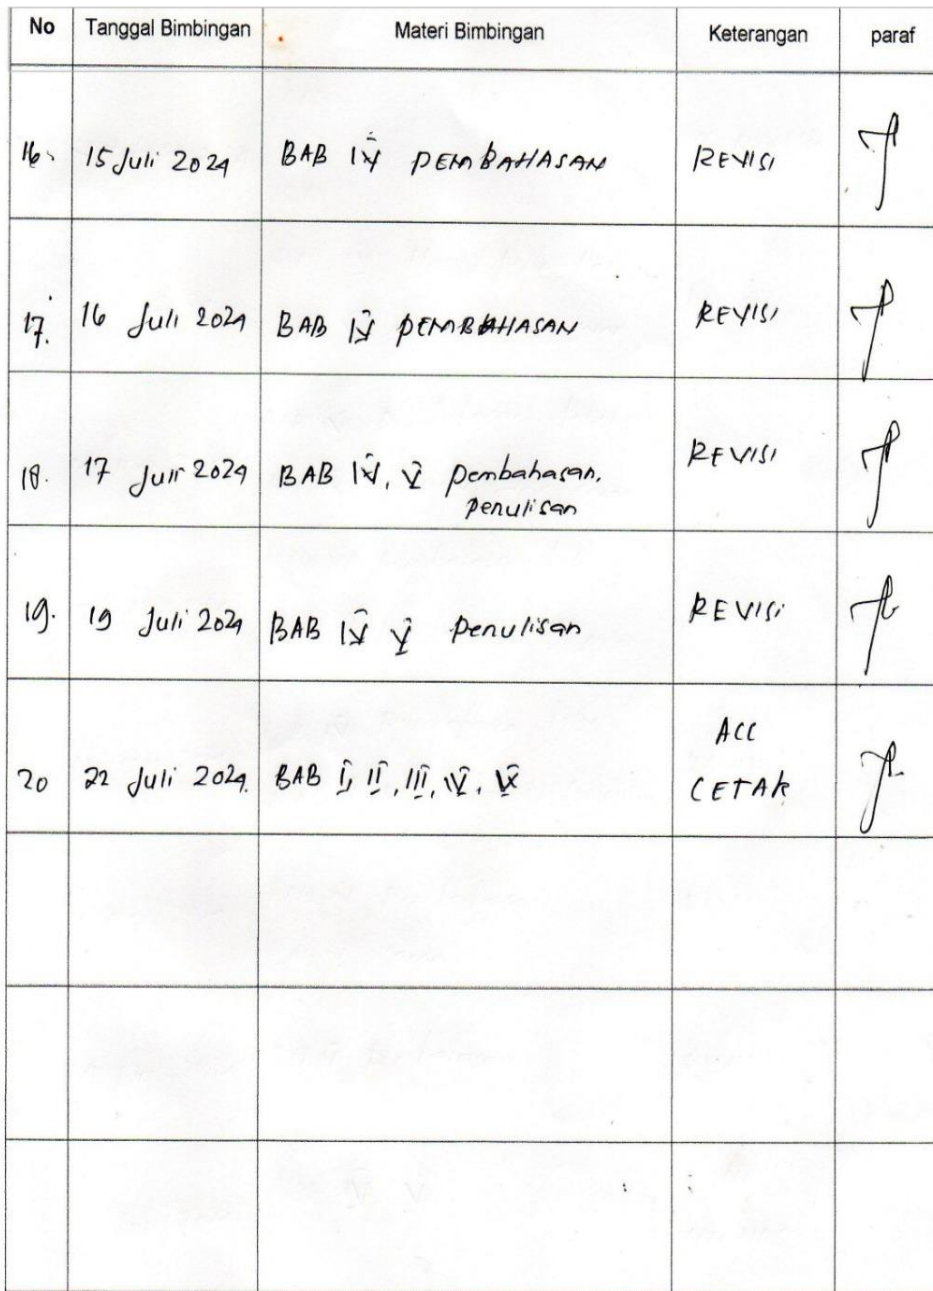 No Tanggal Bimbingan Materi Bimbingan Keterangan paraf
16. 15 Juli 2024 BAB IV PEMBAHASAN REVISI
17. 16 Juli 2024 BAB IV PEMBAHASAN REVISI
18. 17 Juli 2024 BAB IV, V pembahasan, REVISI
penulisan
19. 19 Juli 2024 BAB IV V penulisan REVISI
ACC
20 22 Juli 2024. BAB I, II, III, IV, V CETAK